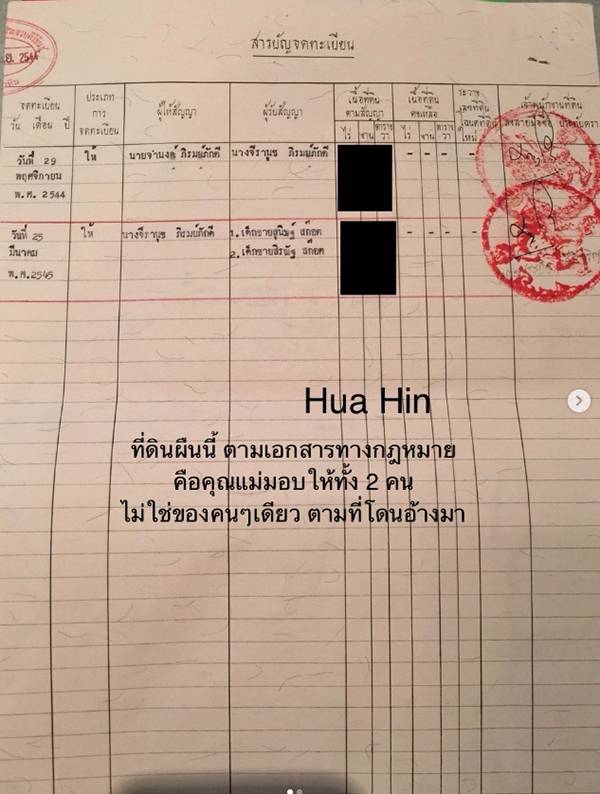 พ.ย. 2544
สารบัญจดทะเบียน
จดทะเบียน
วัน เดือน ปี
ประเภท
การ
จดทะเบียน
ผู้ให้สัญญา
ผู้รับสัญญา
เนื้อที่ดิน
ตามสัญญา
ไร่ งาน ตาราง
วา
เนื้อที่ดิน
คงเหลือ
ไร่ งาน ตาราง
วา
ระวาง
เลขที่ดิน
โฉนดที่ดิน
ใหม่
เจ้าพนักงานที่ดิน
ลงลายมือชื่อ ประทับตรา
วันที่ 29
พฤศจิกายน
พ.ศ. 2544
ให้
นายจำนงค์ ภิรมย์ภักดี
นางจีรานุช ภิรมย์ภักดี
- - - -
วันที่ 25
มีนาคม
พ.ศ.2545
ให้
นางจีรานุช ภิรมย์ภักดี
1.เด็กชายสุนิษฐ์ สก๊อต
2.เด็กชายสิรณัฐ สก๊อต
- - - -
Hua Hin
ที่ดินผืนนี้ ตามเอกสารทางกฎหมาย
คือคุณแม่มอบให้ทั้ง 2 คน
ไม่ใช่ของคนๆเดียว ตามที่โดนอ้างมา